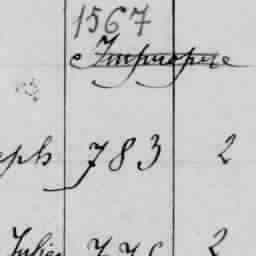 1567
Impropre
eph 783 2
Julie 776 2